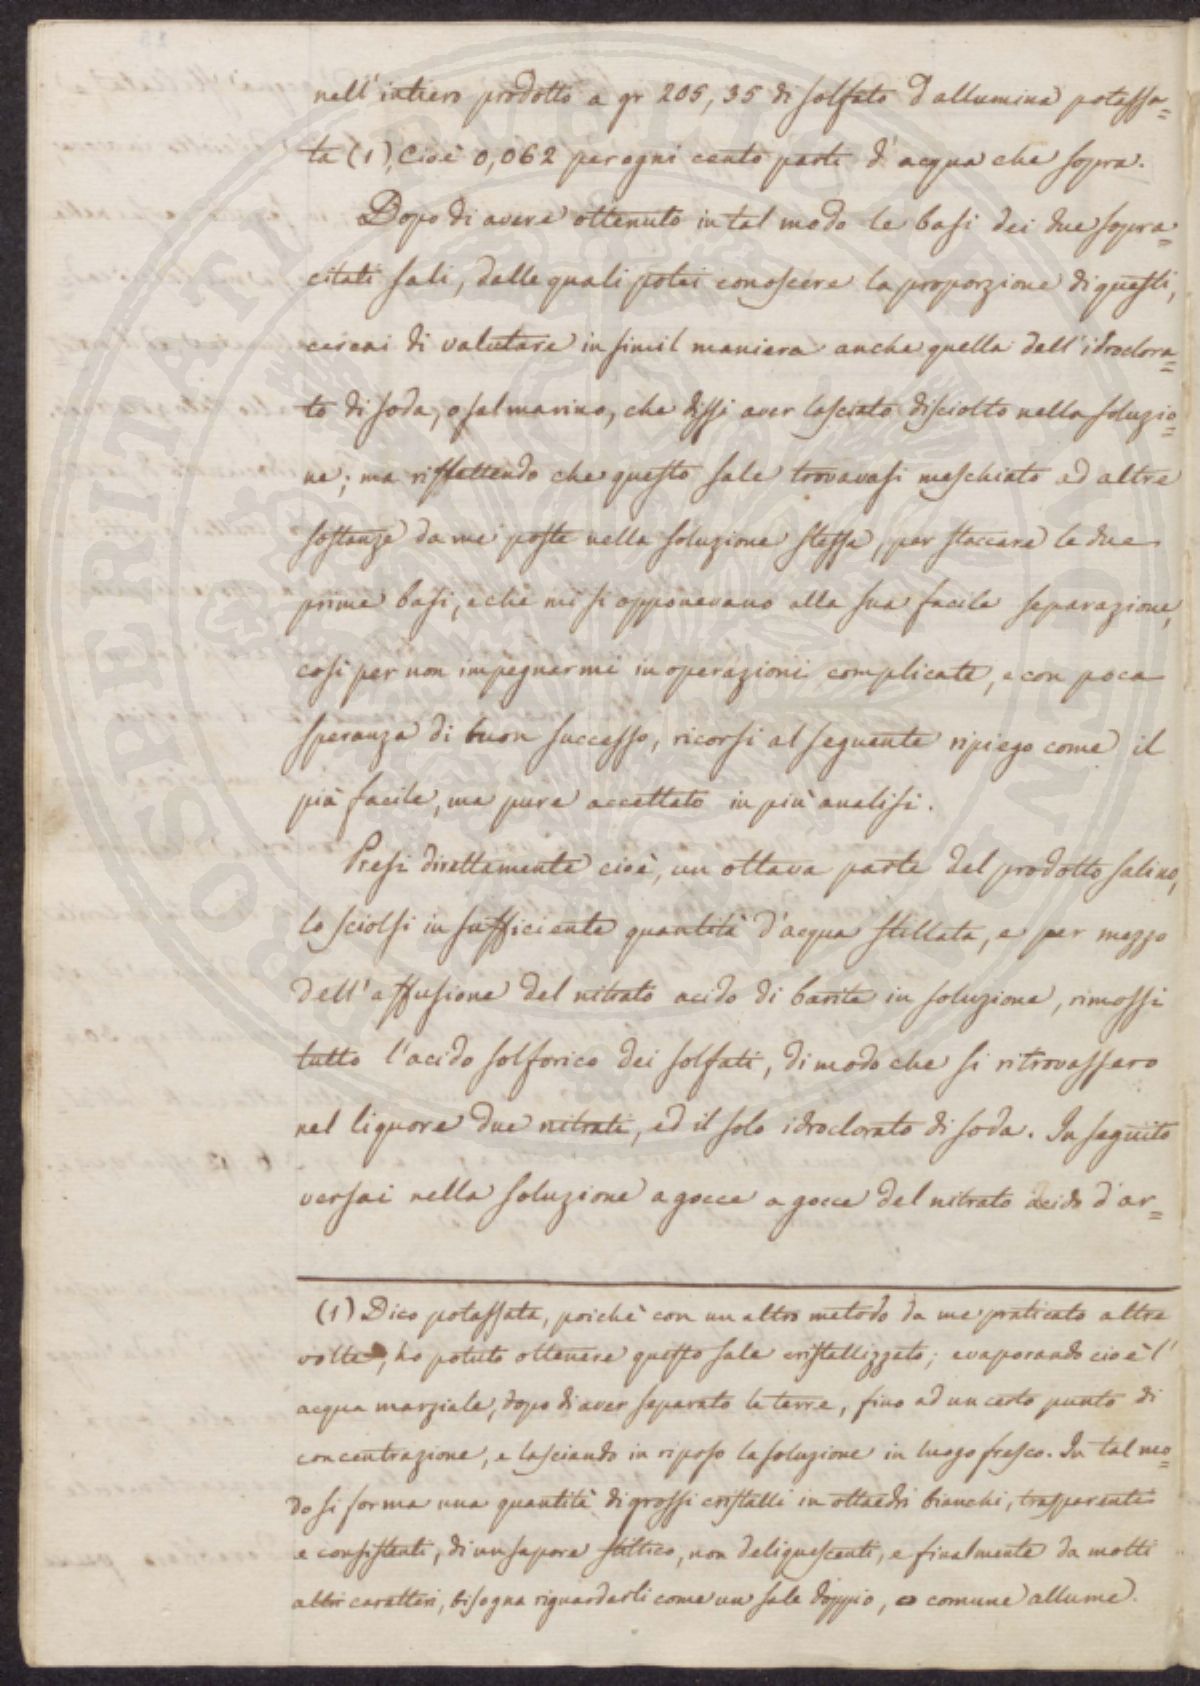 nell'intiero prodotto a gr 205,35 di solfato d'allumina potassa=
ta (1), cioè 0,062 per ogni cento parti d'acqua che sopra.
Dopo di avere ottenuto in tal modo le basi dei due sopra=
citati sali, dalle quali potei conoscere la proporzione di questi,
cercai di valutare in simil maniera anche quella dell'idroclora=
to di soda, o sal marino, che dissi aver lasciato disciolto nella soluzio=
ne; ma riflettendo che questo sale trovavasi meschiato ad altre
sostanze da me poste nella soluzione stessa, per staccare le due
prime basi, e che mi si opponevano alla sua facile separazione,
così per non impegnarmi in operazioni complicate, e con poca
speranza di buon successo, ricorsi al seguente ripiego come il
più facile, ma pure accettato in più analisi.
Presi direttamente cioè, un ottava parte del prodotto salino,
lo sciolsi in sufficiente quantità d'acqua stillata, e per mezzo
dell'affusione del nitrato acido di barite in soluzione, rimossi
tutto l'acido solforico dei solfati, di modo che si ritrovassero
nel liquore due nitrati, ed il solo idroclorato di soda. In seguito
versai nella soluzione a gocce a gocce del nitrato acido d'ar=
(1) Dico potassata, poichè con un altro metodo da me praticato altre
volte, ho potuto ottenere questo sale cristallizzato; evaporando cioè l'
acqua marziale, dopo di aver separato le terre, fino ad un certo punto di
concentrazione, e lasciando in riposo la soluzione in luogo fresco. In tal mo=
do si forma una quantità di grossi cristalli in ottaedri bianchi, trasparenti
e consistenti, di un sapore stittico, non deliquescenti, e finalmente da molti
altri caratteri, bisogna riguardarli come un sale doppio, o comune allume.